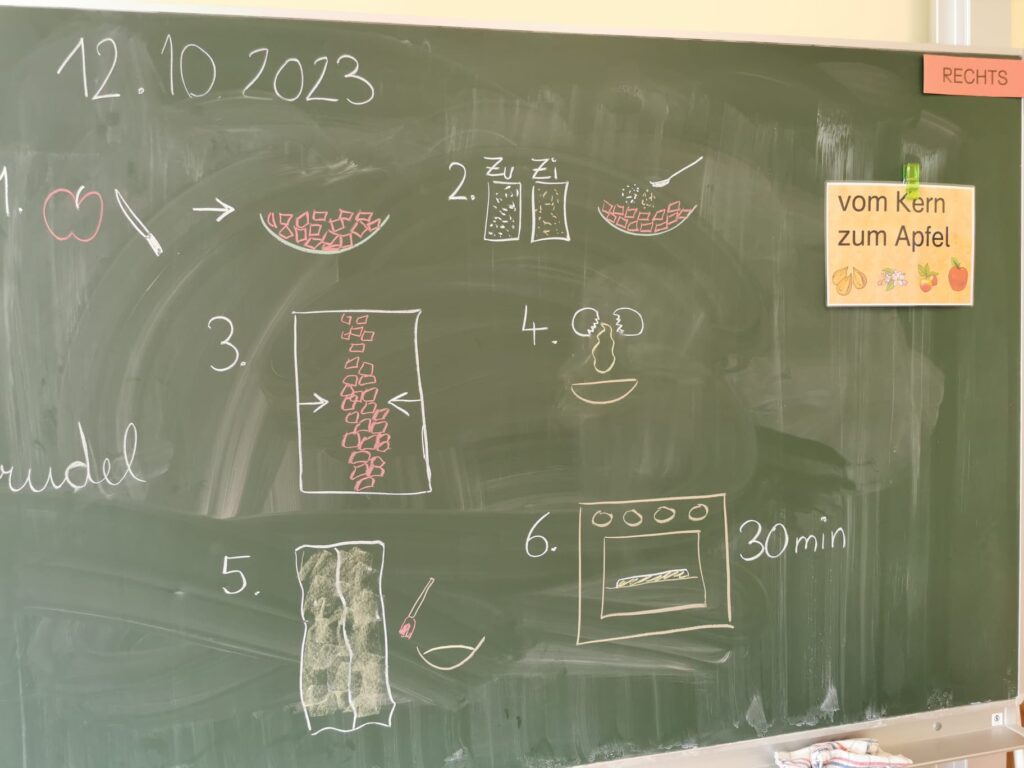 12.10.2023
RECHTS
1.
2. Zu Zi
vom Kern
zum Apfel
3.
4.
rudel
5.
6. 30 min